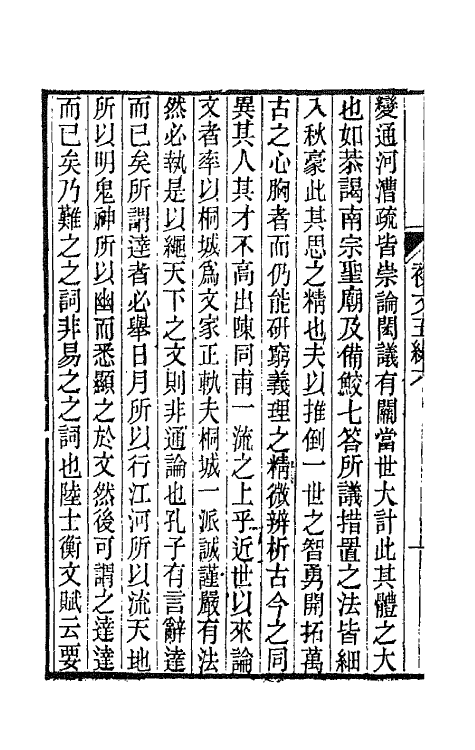 變通河漕疏皆崇論閎議有關當世大計此其體之大
也如恭謁南宗聖廟及備鮫七答所議措置之法皆細
入秋豪此其思之精也夫以推倒一世之智勇開拓萬
古之心胸者而仍能研窮義理之精微辨析古今之同
異其人其才不高出陳同甫一流之上乎近世以來論
文者率以桐城爲文家正軌夫桐城一派誠謹嚴有法
然必執是以繩天下之文則非通論也孔子有言辭達
而已矣所謂達者必舉日月所以行江河所以流天地
所以明鬼神所以幽而悉顯之於文然後可謂之達達
而已矣乃難之之詞非易之之詞也陸士衡文賦云要